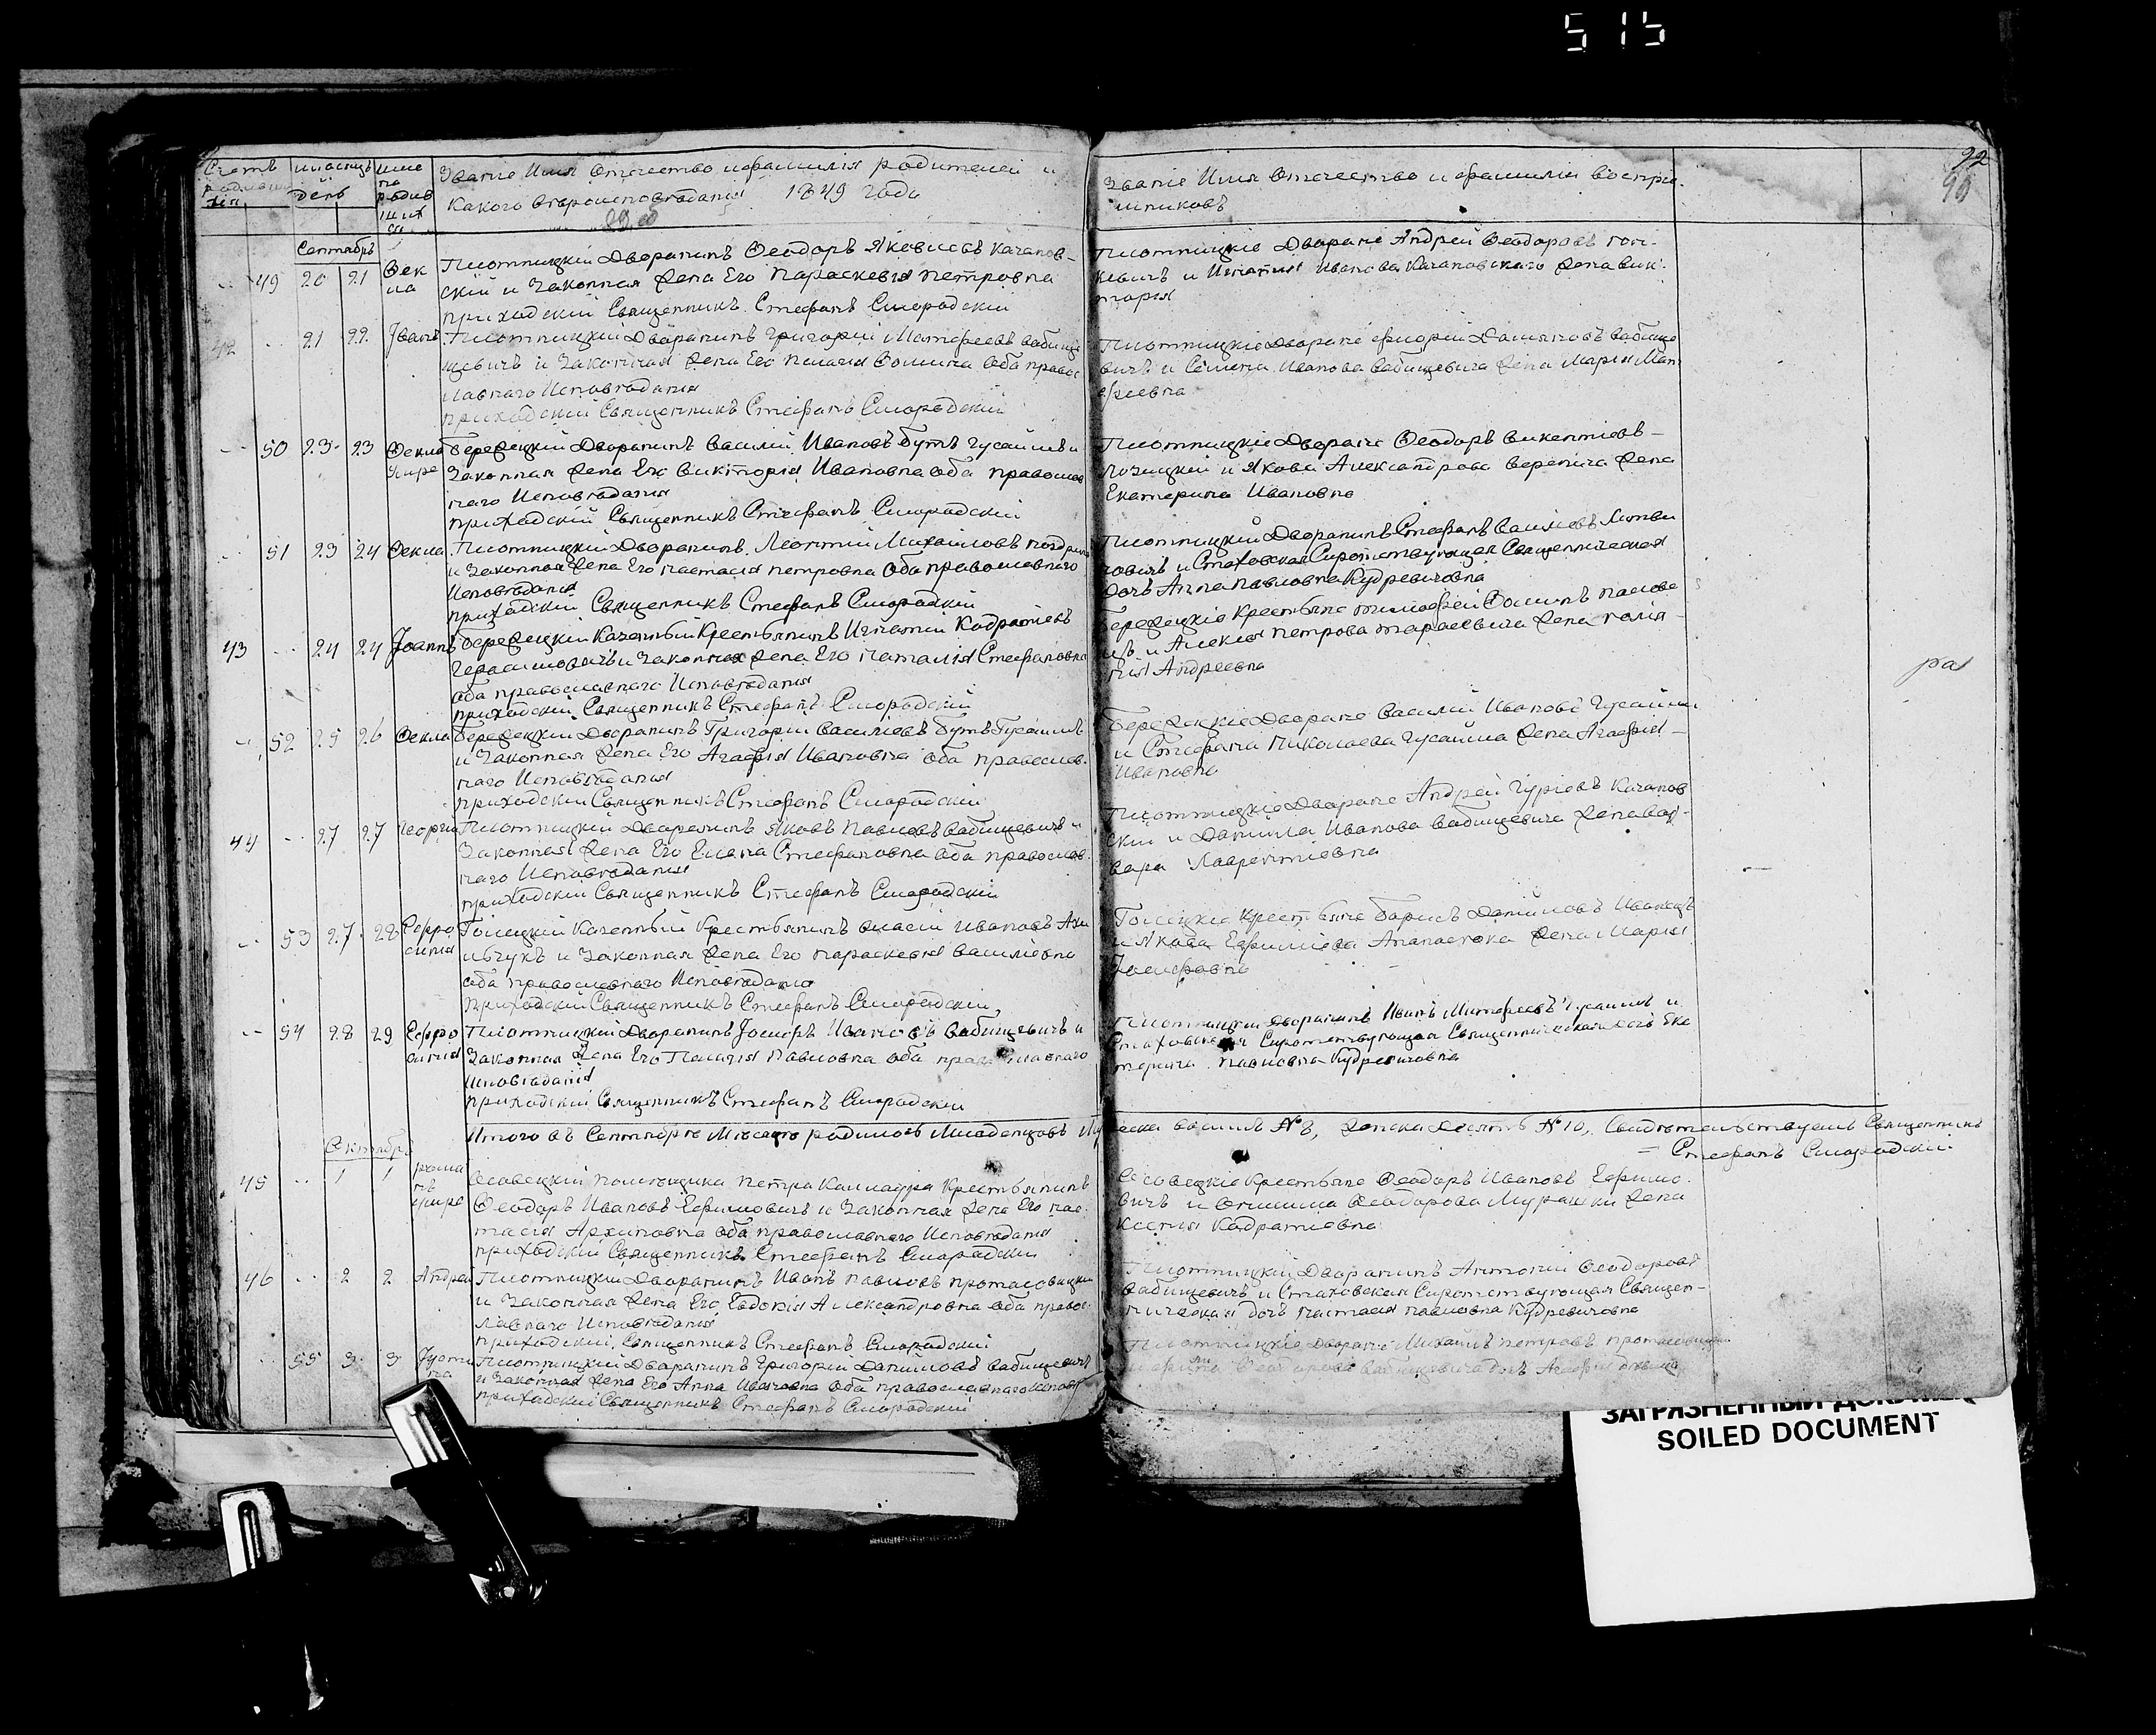 515
92
90
Счетъ родивших
Мѣсяцъ и день
Имена родившихся
Званіе Имя Отчество и фамилія родителей и
какого вѣроисповѣданія 1849 года
Званіе Имя Отчество и фамилія воспріе-
мниковъ
Сентябрь
49 20 21 Фек
ла
Плотницкій Дворанинъ Феодоръ Яковлевъ Качанов-
скій и Законная жена Его Параскевія Петровна
приходскій Священникъ Стефанъ Смородскій
Плотницкіе Дворане Андрей Феодоровъ Гон-
кевичъ и Игнатія Иванова Качановскаго жена Вик-
торія
42 21 22 Іванъ
Плотницкій Дворанинъ Григорій Матфеевъ Бабище
щевичъ и Законная жена Его Пелагія Фомина оба правос
лавнаго Исповѣданія
приходскій Священникъ Стефанъ Смородскій
Плотницкіе Дворане Григорій Даміановъ Бабище
вичъ и Семена Иванова Бабищевича жена Марія Мат
фѣевна
50 23 23 Фекла
Умре
Бережецкій Дворанинъ Василій Ивановъ Бутъ Гусаимъ и
Законная жена Его Викторія Ивановна оба православ
наго Исповѣданія
приходскій Священникъ Стефанъ Смородскій
Плотницкіе Дворане Феодоръ Викентіевъ
Лозицкій и Якова Александрова Веренича жена
Екатерина Ивановна
51 23 24 Фекла
Плотницкій Дворанинъ Леонтій Михайловъ
и Законная жена Его Настасія Петровна оба православнаго
Исповѣданія
приходскій Священникъ Стефанъ Смородскій
Плотницкій Дворанинъ Стефанъ Василіевъ Литви
новичъ и Стаховская Сиротствующая Священническая
дочъ Анна Павловна Кудревичовна
43 24 24 Іоаннъ
Бережецкій Казенный Крестьянинъ Игнатій Кодратіевъ
Герасимовичъ и Законная жена Его Наталія Стефановна
оба православнаго Исповѣданія
приходскій Священникъ Стефанъ Смородскій
Бережецкіе Крестьяне Тимофей Фоминъ
и Алексія Петрова Тарасевича жена
Андреевна
ра
52 25 26 Фекла
Бережецкій Дворанинъ Григорій Василіевъ Бутъ Гусаимъ
и Законная жена Его Агафія Ивановна оба православ-
наго Исповѣданія
приходскій Священникъ Стефанъ Смородскій
Бережецкіе Дворане Василій Ивановъ Гусаимъ
и Стефана Николаева Гусаима жена Агафія
Ивановна
44 27 27 Георгій
Плотницкій Дворанинъ Яковъ Павловъ Бабищевичъ и
Законная жена Его Елена Стефановна оба православ-
наго Исповѣданія
приходскій Священникъ Стефанъ Смородскій
Плотницкіе Дворане Андрей Гуріевъ Качанов
скій и Даніила Иванова Бабищевича жена Вар-
вара Лаврентіевна
53 27 28 Ефро
синія
Голецкій Казенный Крестьянинъ Власій Ивановъ
и Законная жена Его Параскевія Василіевна
оба православнаго Исповѣданія
приходскій Священникъ Стефанъ Смородскій
Голецкіе Крестьяне Борисъ Даніиловъ Иванецъ
и Якова Ефиміева жена Марія
Іосифовна
54 28 29 Ефро
синія
Плотницкій Дворанинъ Іосифъ Ивановъ Бабищевичъ и
Законная жена Его Пелагія Павловна оба православнаго
Исповѣданія
приходскій Священникъ Стефанъ Смородскій
Плотницкій Дворанинъ Иванъ Матфеевъ Гусаимъ и
Стаховская Сиротствующая Священническая дочъ Ека
терина Павловна Кудревичовна
Итого въ Сентябрѣ Мѣсяцѣ родилось Младенцовъ Мужеска восимъ №8, женска десять №10, Свидѣтельствуемъ Священникъ
Стефанъ Смородскій
Октябрь
45 1 1 Рома
нъ
Умре
Осовецкій Помѣщика Петра Крестьянинъ
Феодоръ Ивановъ Ефимовичъ и Законная жена Его Нас
тасія Архиповна оба православнаго Исповѣданія
приходскій Священникъ Стефанъ Смородскій
Осовецкіе Крестьяне Феодоръ Ивановъ Ефимо-
вичъ и Феодорова Мурашки жена
Ксенія Кодратіевна
46 2 2 Андрей
Плотницкій Дворанинъ Иванъ Павловъ Протасовицкій
и Законная жена Его Евдокія Александровна оба правос-
лавнаго Исповѣданія
приходскій Священникъ Стефанъ Смородскій
Плотницкій Дворанинъ Антоній Феодоровъ
Бабищевичъ и Стаховская Сиротствующая Священ-
ническая дочъ Настасія Павловна Кудревичовна
55 3 3 Іусти
на
Плотницкій Дворанинъ Григорій Даніиловъ Бабищевичъ
и Законная жена Его Анна Ивановна оба православнаго Исповѣд
приходскій Священникъ Стефанъ Смородскій
Плотницкіе Дворане Михаилъ Петровъ Протасовицкій
Бабищевича дочъ Агафія
ЗАГРЯЗНЕННЫЙ ДОКУМЕ
SOILED DOCUMENT